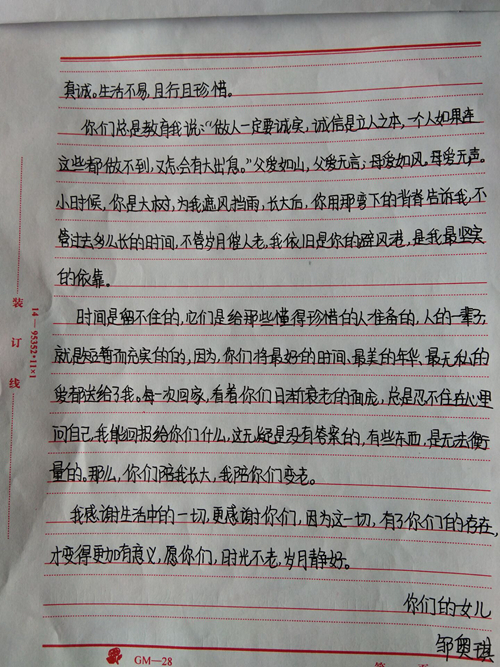 真诚。生活不易,且行且珍惜。
你们总是教育我说:“做人一定要诚实,诚信是立人之本,一个人如果连
这些都做不到,又怎会有大出息。”父爱如山,父爱无言;母爱如风。母爱无声。
小时候,你是大树,为我遮风挡雨,长大后,你用那弯下的背脊告诉我,不
管过去多么长的时间,不管岁月催人老,我依旧是你的避风港,是我最坚实
的依靠。
时间是留不住的,它们是给那些懂得珍惜的人准备的,人的一辈子,
就是短暂而充实的的,因为,你们将最好的时间、最美的年华、最无私的
爱都送给了我。每一次回家,看着你们日渐衰老的面庞,总是忍不住在心里
问自己,我能回报给你们什么,这无疑是没有答案的,有些东西,是无法衡
量的。那么,你们陪我长大,我陪你们变老。
我感谢生活中的一切,更感谢你们,因为这一切,有了你们们的存在,
才变得更加有意义,愿你们,时光不老,岁月静好。
你们的女儿
邹奥琪
装订线
14—95352·11×1
GM—28